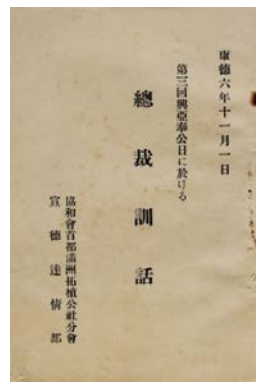 康德六年十一月一日
第三回興亞奉公日に於ける
總裁訓話
協和會首都滿洲拓植公社分會
宣德達情部